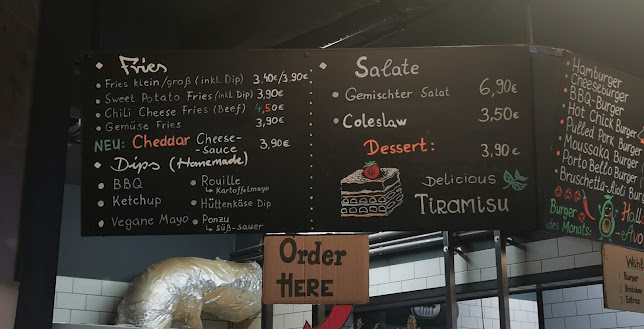 Fries
Fries klein/groß (inkl. Dip) 3.40€/3,90€
Sweet Potato Fries (inkl Dip) 3,90€
Chili Cheese Fries (Beef) 4,50€
Gemüse Fries 3,90€
NEU: Cheddar Cheese-
-sauce 3,90€
Dips (Homemade)
BBQ
Ketchup
Vegane Mayo
Rouille
↳ Kartoffelmayo
Hüttenkäse Dip
Ponzu
↳ Süß-sauer
Salate
Gemischter Salat 6,90€
Coleslaw 3,50€
Dessert: 3,90€
Delicious
TIRAMISU
Hamburger
Cheeseburger
BBQ-Burger
Hot Chick Burger
Pulled Pork Burger
Moussaka Burger
Porto Bello Burger
Bruschetta-Aioli Burger
Burger
des Monats:
Order
HERE
Burger